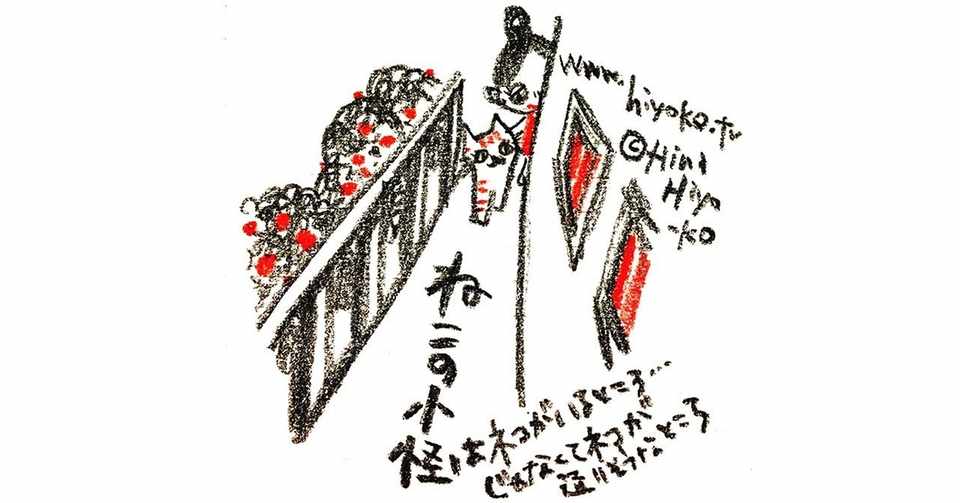 www.
hiyoko.tv
©Hina
Hiyo
-ko
ねこの小径
はネコがいるところ…
じゃなくてネコが
通りそうなところ